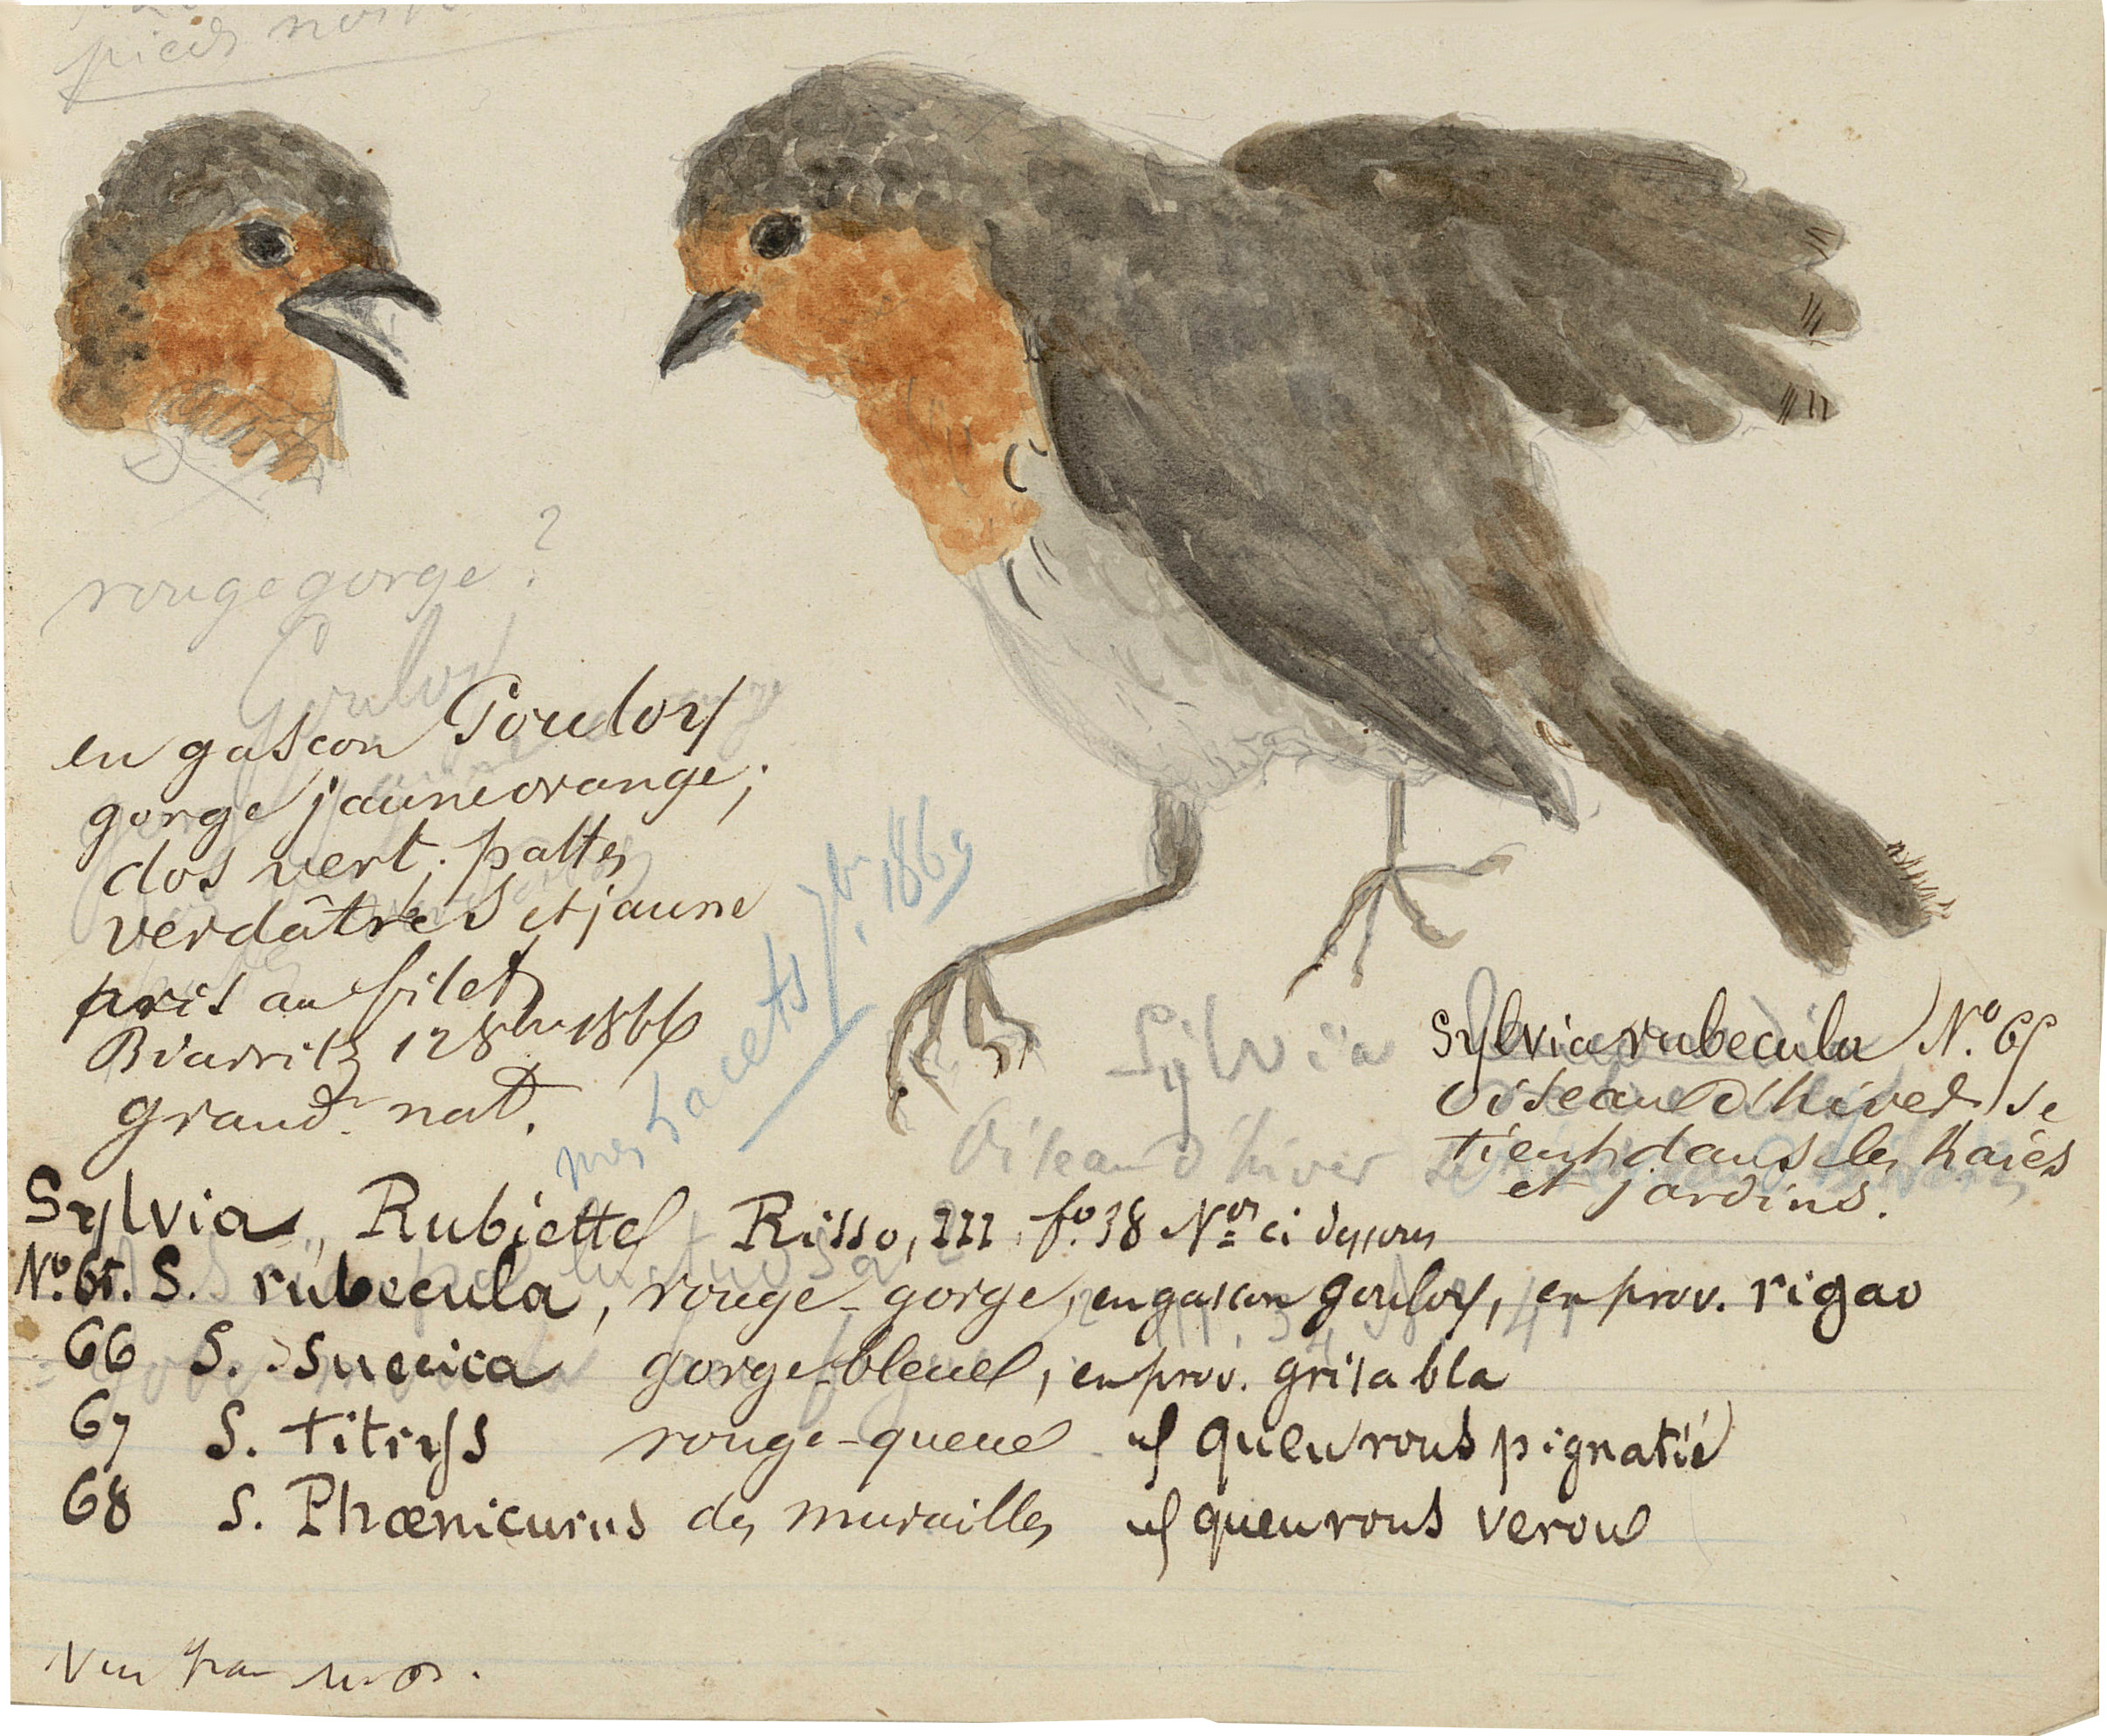 pieds
rougegorge ?
Goulox
en gascon Goulox
gorge jauneorange;
dos vert; pattes
verdâtres et jaune
pris au filet
Biarritz 12 8bre 1866
grand. nat.
mes lacets 7br. 1869
Sylvia
Oiseau d'hiver
Sylvia rubecula N.º 65
Oiseau d'hiver se
tient dans les haies
et jardins.
Sylvia, Rubiette Risso, III, fº. 38 Nos ci dessous
Nº. 65. S. rubecula, rouge-gorge, en gascon goulox, en prov. rigao
66 S. suecica gorge-bleue, en prov. grisa bla
67 S. titrys rouge-queue id queurous pignatié
68 S. Phœnicurus des murailles id queurous
Vu par